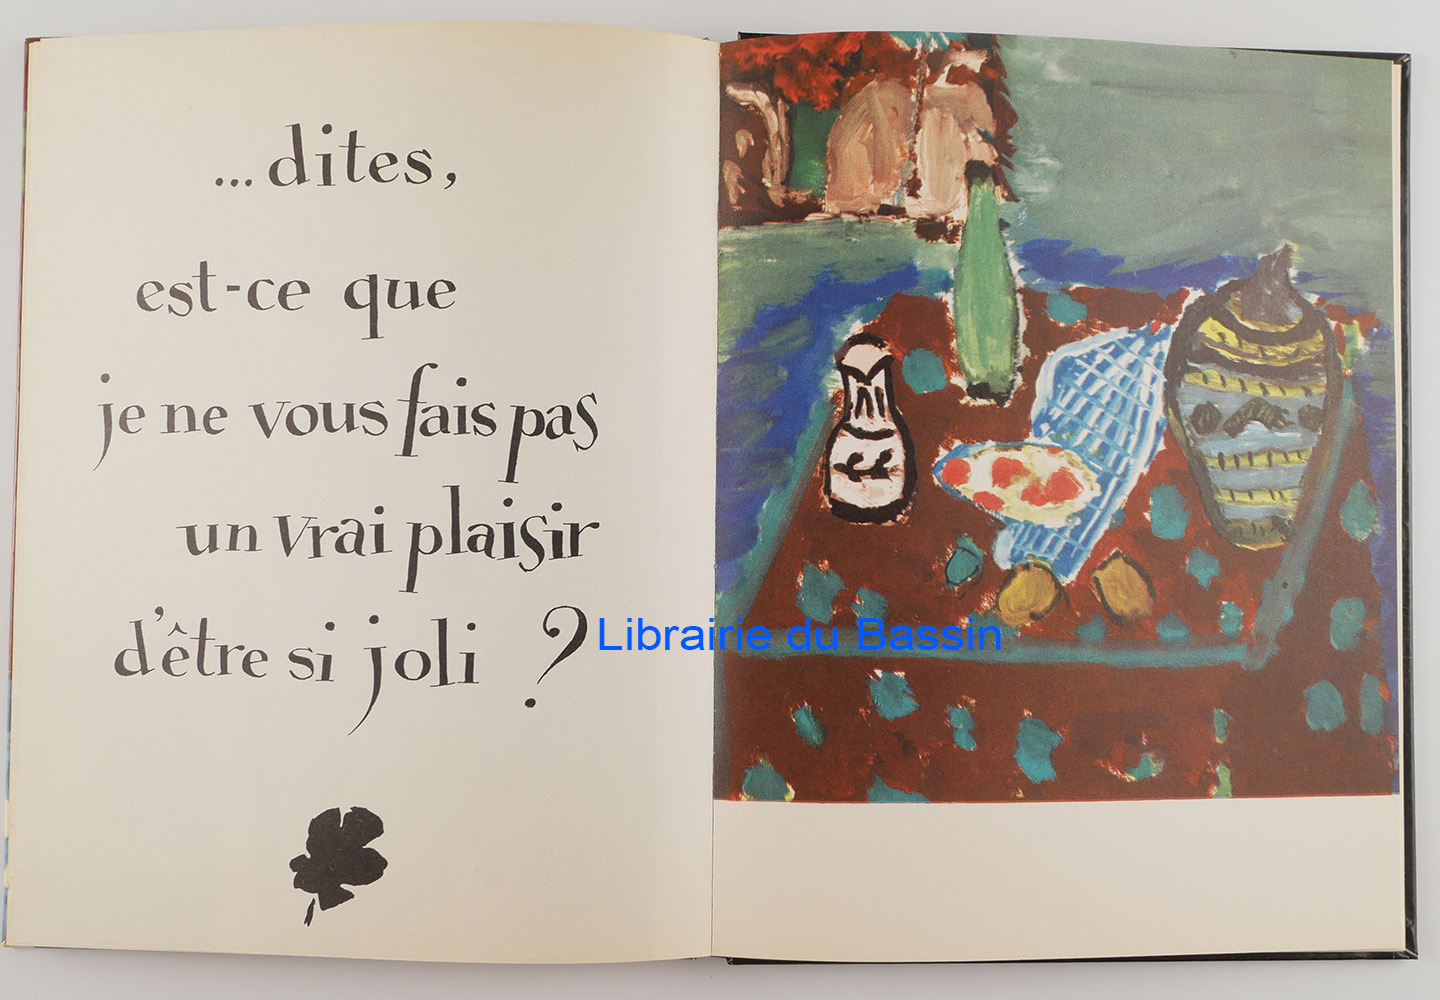 ... dites,
est-ce que
je ne vous fais pas
un vrai plaisir
d'être si joli ?
Librairie du Bassin